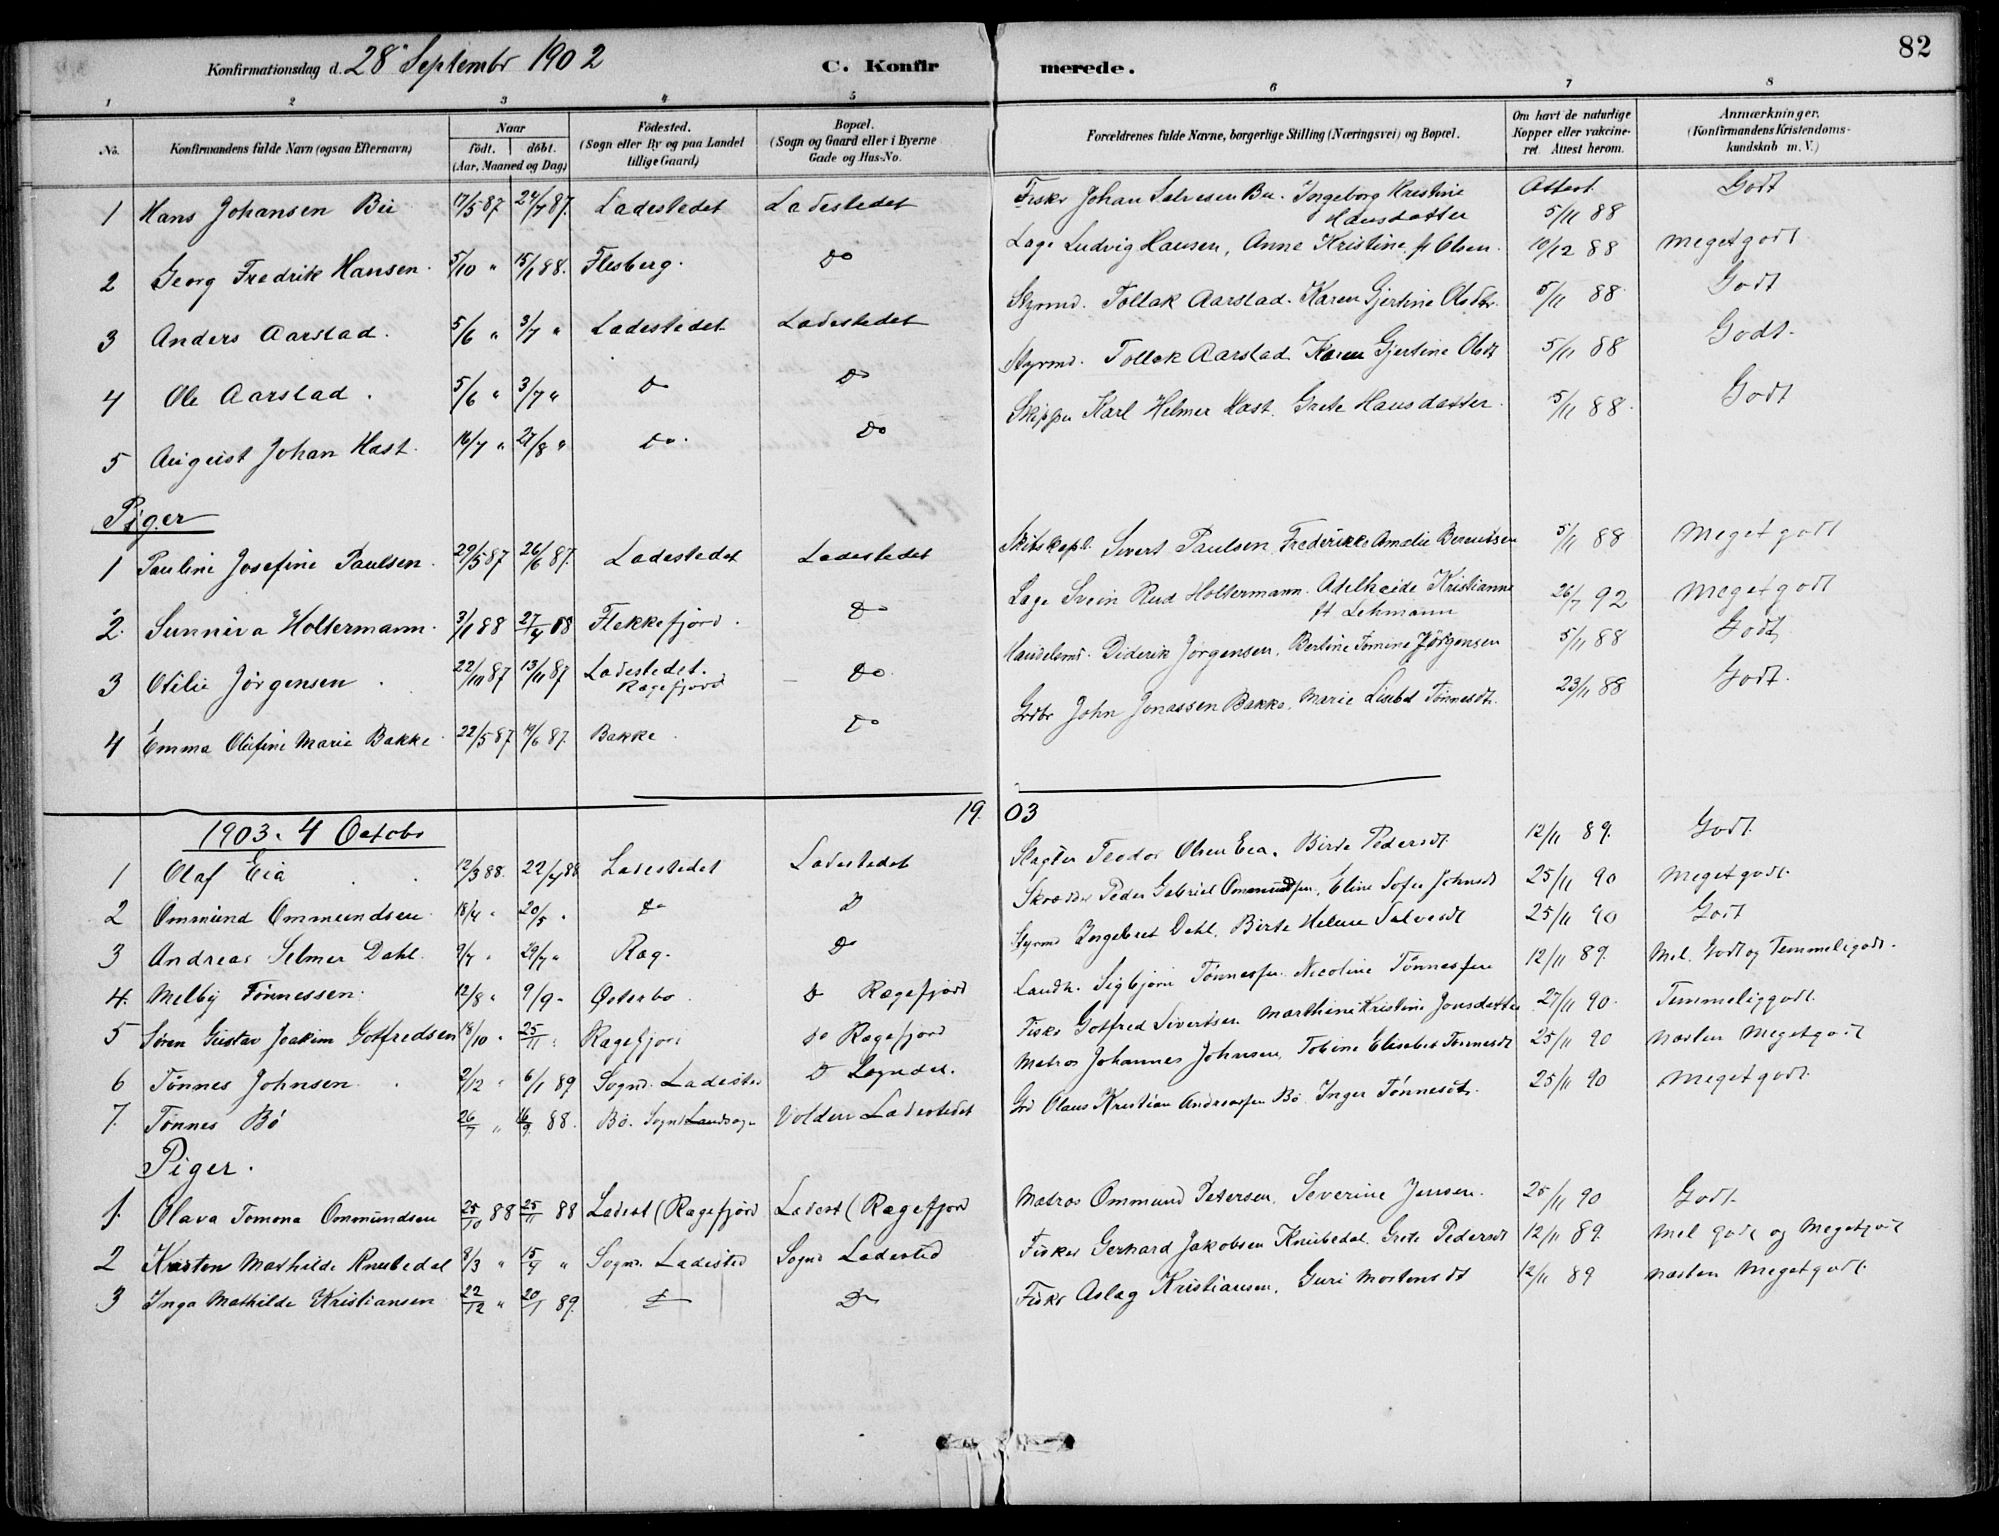 82
Konfirmationsdag d. 28' Septembr 1902 C. Konfirmerede.
1 2 3 4 5 6 7 8
No. Konfirmandens fulde Navn (ogsaa Efternavn) Naar født. døbt. (Aar, Maaned og Dag) Fødested. (Sogn eller By og paa Landet tillige Gaard) Bopæl. (Sogn og Gaard eller i Byerne Gade og Hus-No. Forældrenes fulde Navne, borgerlige Stilling (Næringsvei) og Bopæl. Om havt de naturlige Kopper eller vakcineret. Attest herom. Anmærkninger. (Konfirmandens Kristendomskundskab m. V.)
1 Hans Johansen Bu 17/5 87 24/7 87. Ladestedet Ladestedet Fisker Johan Salvesen Bu. Ingeborg Kristine Hansdatter Attest. 5/11 88 Godt
2 Georg Fredrik Hansen. 5/10 " 15/1 88. Flesberg. Do Læge Ludvig Hansen, Anna Kristine f. Olsen. 10/12 88 Meget godt
3 Anders Aarstad. 5/6 " 3/7 " Ladestedet Ladestedet Styrmd. Tollak Aarstad. Karen Gjertine Olsdtr. 5/11 88 Godt
4 Ole Aarstad. 5/6 " 3/7 " Do Do Styrmd. Tollak Aarstad. Karen Gjertine Olsdt 5/11 88 Godt.
5 August Johan Hast. 16/7 " 27/8 " Do. Do Skipper Karl Helmer Hast. Grete Hansdatter. 5/11 88. Godt
Piger
1 Pauline Josefine Paulsen. 29/5 87 26/6 87. Ladestedet Ladestedet Sivert Paulsen, Frederikke Amalie Berentsen 5/11 88 Meget godt
2. Sunniva Holtermann. 3/1 88 27/4 88 Flekkefjord. Do Læge Svein Rud Holtermann. Adelheide Kristianne ft Lehmann 26/7 92 Meget godt
3 Otilie Jørgensen. 22/10 87 13/11 87 Ladestedet. Ragefjord Do Handelsmd. Diderik Jørgensen, Bertine Tomine Jørgensen 5/11 88 Godt
4 Emma Olufine Marie Bakke 22/5 87 19/6 87. Bakke. Do Grdbr John Jonassen Bakke. Marie Lisebet Tønnesdt. 23/11 88 Godt.
1903
1903. 4 Octobr
1 Olaf Eia 12/3 88. 22/4 88 Ladestedet Ladestedet Slagter Teodor Olsen Eia. Birte Pedersdt 12/11 89. Godt.
2 Ommund Ommundsen 18/4 " 20/5 " Do Do Skrædder Peder Gabriel Ommundsen, Eline Sofie Johnsdt 25/11 90 Meget godt.
3 Andreas Selmer Dahl. 9/7 " 29/7 " Rag. Do Styrmd Ingebret Dahl, Birte Helene Salvesdt 25/11 90 Godt
4. Melby Tønnessen. 12/8 " 9/9 " Østerbø Do Ragefjord Landh. Sigbjørn Tønnessen. Nicoline Tønnessen 12/11 89. Mel. Godt og Temmeligodt.
5 Søren Gustav Joakim Gotfredsen 18/10 " 25/11 " Ragefjord do Ragefjord Fisker Gotfred Sivertsen. Marthine Kristine Jonsdatter 27/11 90. Temmeliggodt.
6 Tønnes Johnsen. 2/12 " 6/1 89 Sognd. Ladested Do Sogndal. Matros Johannes Johnsen, Tobine Elisabet Tønnesdt 25/11 90 Næsten Meget godt
7. Tønnes Bø 26/7 " 16/9 88. Bø. Sognd Landsogn Volden Ladestedet Grd Olaus Kristian Andreassen Bø. Inger Tønnesdt. 25/11 90 Meget godt.
Piger.
1. Olava Tomona Ommundsen 25/10 88 25/11 88 Ladest (Ragefjord Ladest (Ragefjord Matros Ommund Petersen. Severine Jensen. 25/11 90 Godt.
2 Karsten Mathilde Knubedal 8/3 " 15/4 " Sognd. Ladested Sognd Ladested Fisker Gerhard Jakobsen Knubedal. Grete Pedersdt 12/11 89. Mel godt og Megetgodt
3 Inga Mathilde Kristiansen 22/12 " 20/1 89. Do Do Fisker Aslag Kristiansen, Guri Mortensdt 12/11 89 Næsten Meget godt.